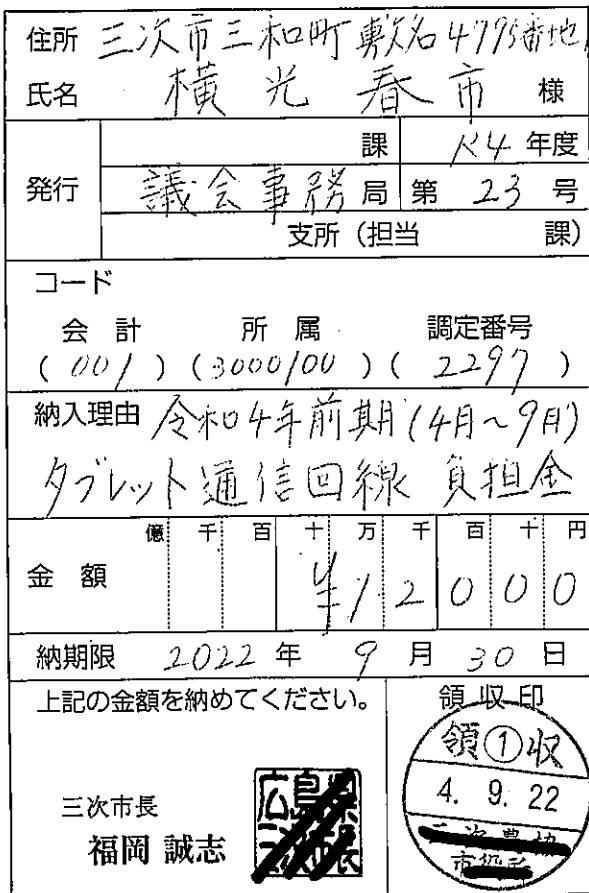 住所 三次市三和町敷名4795番地1
氏名 横光春市 様
発行
課 R4年度
議会事務局 第 23 号
支所(担当 課)
コード
会計 所属 調定番号
(001)(3000100)(2297)
納入理由 令和4年前期(4月~9月)
タブレット通信回線 負担金
億 千 百 十 万 千 百 十 円
金額 ¥12000
納期限 2022年 9月 30日
上記の金額を納めてください。
領収印
領①収
4. 9. 22
三次市長
福岡 誠志